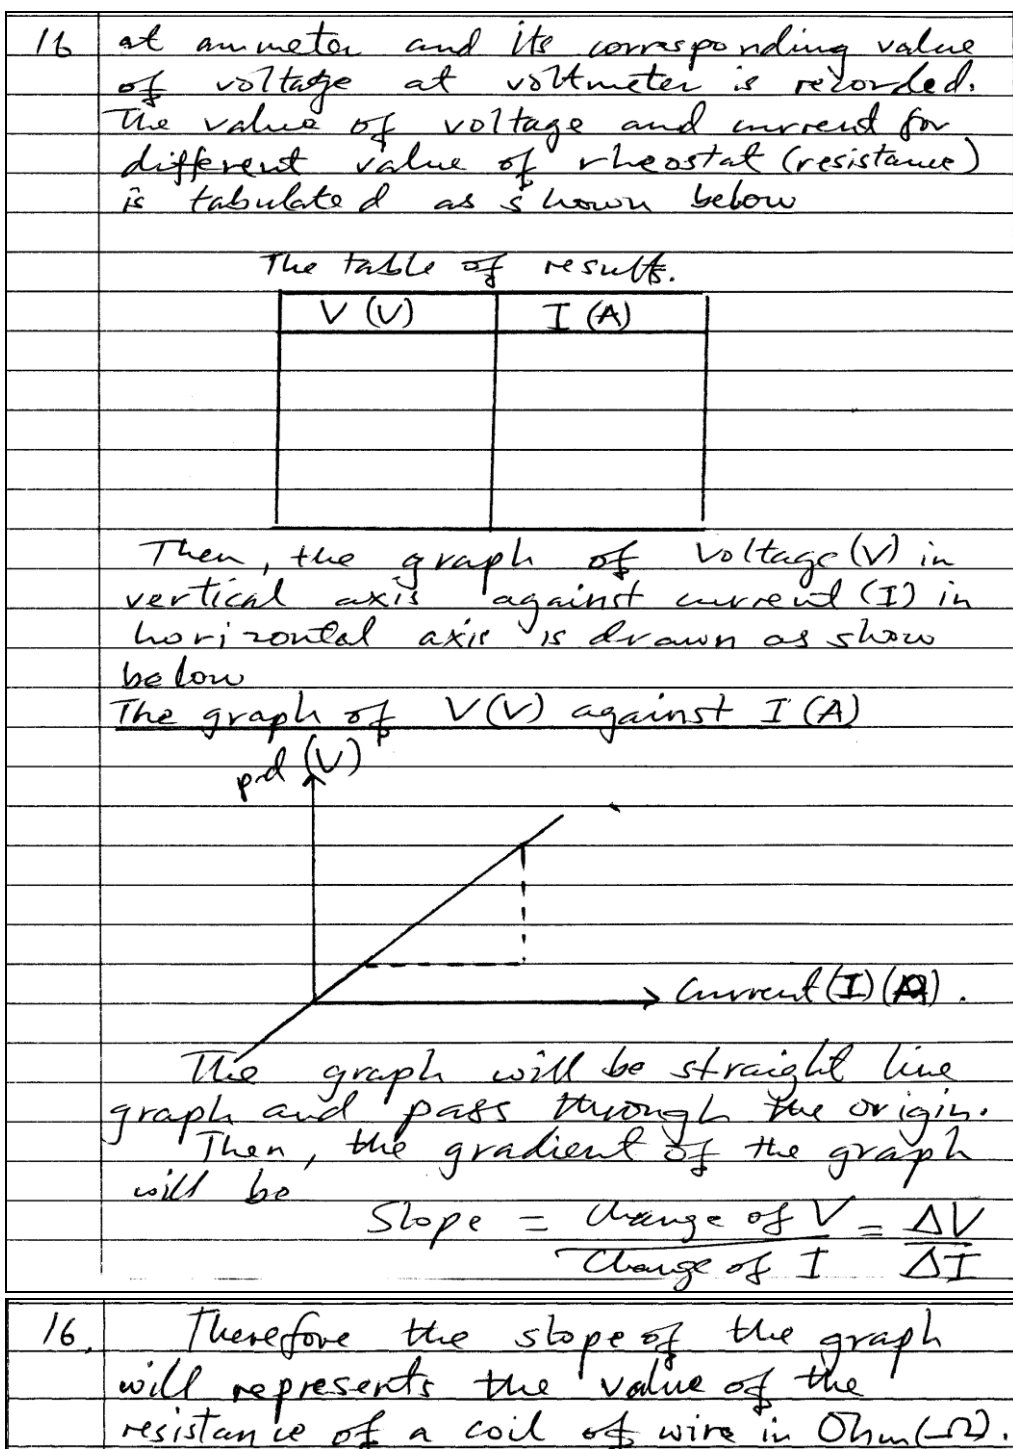 16 at ammeter and its corresponding value
of voltage at voltmeter is recorded.
The value of voltage and current for
different value of rheostat (resistance)
is tabulated as shown below
The table of results.
V (V) I (A)
Then, the graph of Voltage (V) in
vertical axis against current (I) in
horizontal axis is drawn as show
below
The graph of V(V) against I (A)
p.d (V)
Current (I) (A).
The graph will be straight line
graph and pass through the origin.
Then, the gradient of the graph
will be
Slope = Change of V / Change of I = ΔV / ΔI
16. Therefore the slope of the graph
will represents the value of the
resistance of a coil of wire in Ohm (Ω).